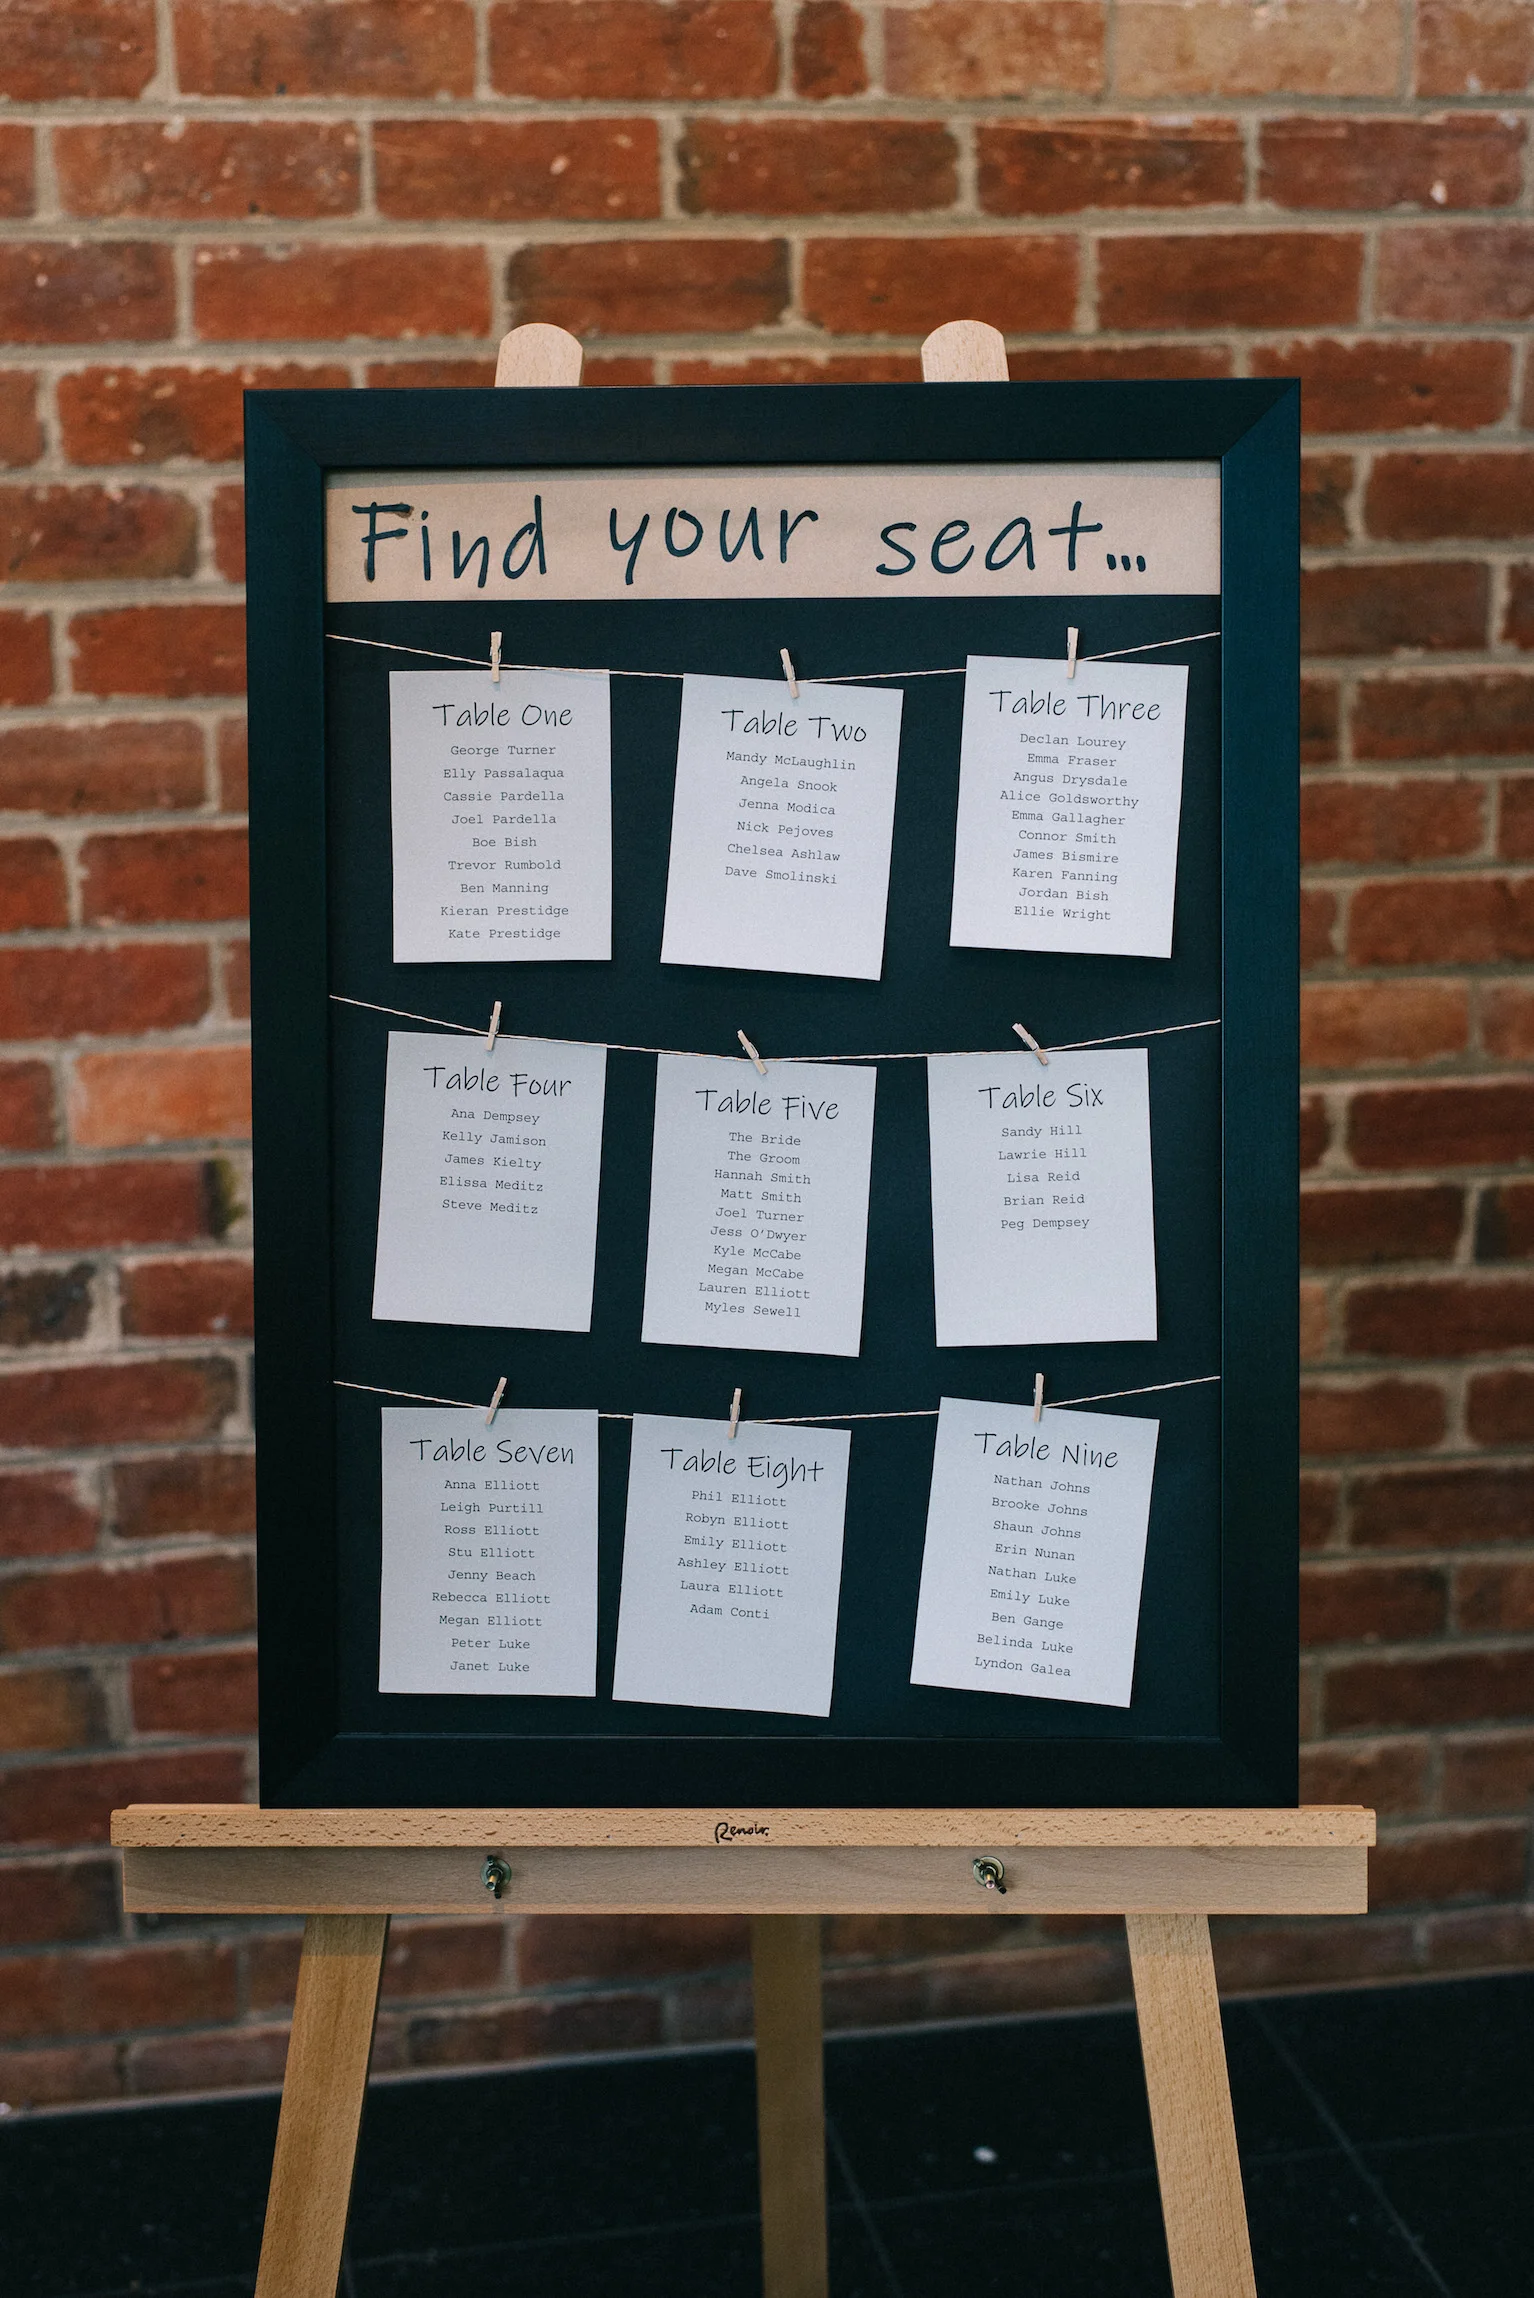 Find your seat...
Table One
George Turner
Elly Passalaqua
Cassie Pardella
Joel Pardella
Boe Bish
Trevor Rumbold
Ben Manning
Kieran Prestidge
Kate Prestidge
Table Two
Mandy McLaughlin
Angela Snook
Jenna Modica
Nick Pejoves
Chelsea Ashlaw
Dave Smolinski
Table Three
Declan Lourey
Emma Fraser
Angus Drysdale
Alice Goldsworthy
Emma Gallagher
Connor Smith
James Bismire
Karen Fanning
Jordan Bish
Ellie Wright
Table Four
Ana Dempsey
Kelly Jamison
James Kielty
Elissa Meditz
Steve Meditz
Table Five
The Bride
The Groom
Hannah Smith
Matt Smith
Joel Turner
Jess O'Dwyer
Kyle McCabe
Megan McCabe
Lauren Elliott
Myles Sewell
Table Six
Sandy Hill
Lawrie Hill
Lisa Reid
Brian Reid
Peg Dempsey
Table Seven
Anna Elliott
Leigh Purtill
Ross Elliott
Stu Elliott
Jenny Beach
Rebecca Elliott
Megan Elliott
Peter Luke
Janet Luke
Table Eight
Phil Elliott
Robyn Elliott
Emily Elliott
Ashley Elliott
Laura Elliott
Adam Conti
Table Nine
Nathan Johns
Brooke Johns
Shaun Johns
Erin Nunan
Nathan Luke
Emily Luke
Ben Gange
Belinda Luke
Lyndon Galea
Renoir.